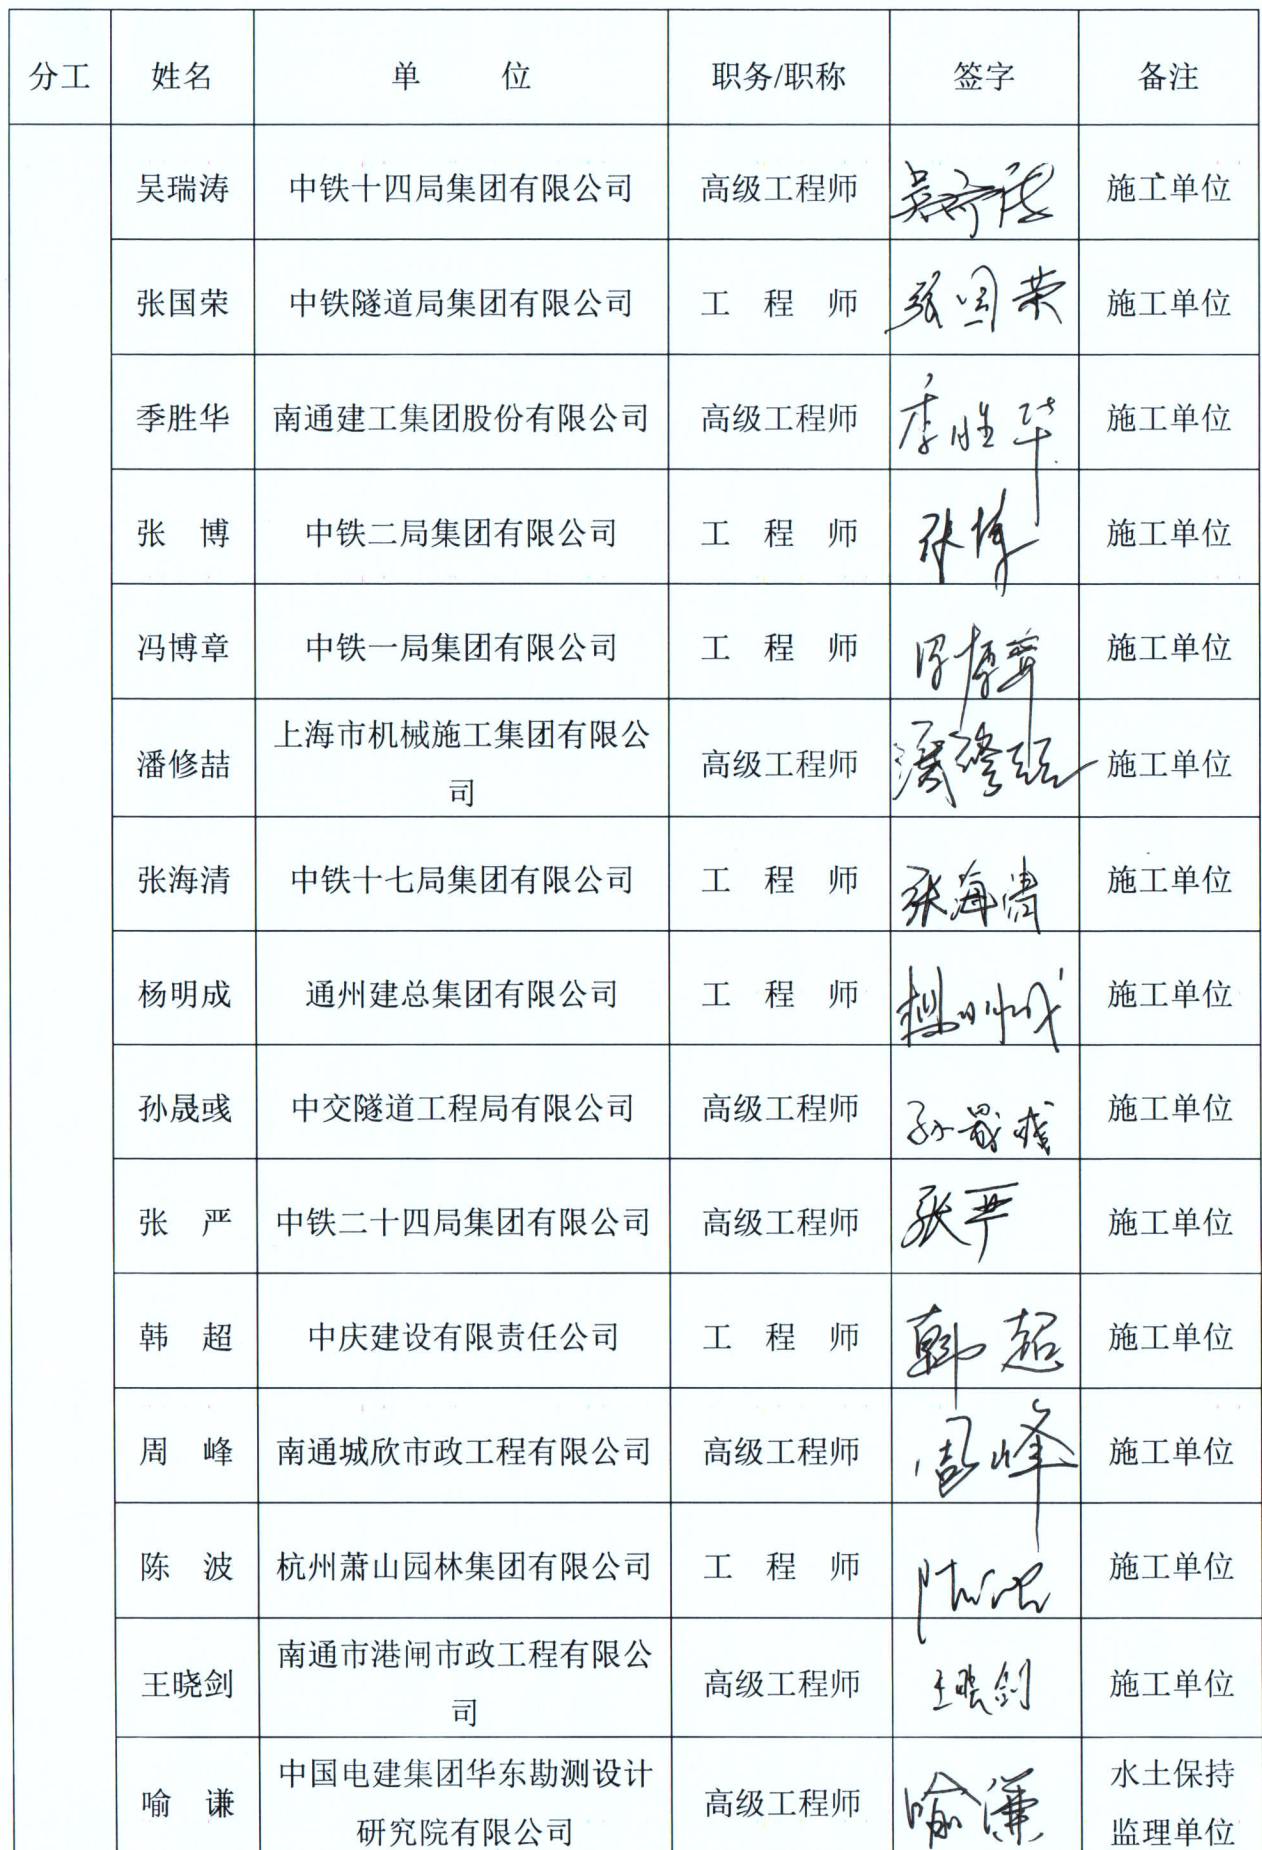 分工 姓名 单 位 职务/职称 签字 备注
吴瑞涛 中铁十四局集团有限公司 高级工程师 吴瑞涛 施工单位
张国荣 中铁隧道局集团有限公司 工 程 师 张国荣 施工单位
季胜华 南通建工集团股份有限公司 高级工程师 季胜华 施工单位
张 博 中铁二局集团有限公司 工 程 师 张博 施工单位
冯博章 中铁一局集团有限公司 工 程 师 冯博章 施工单位
潘修喆 上海市机械施工集团有限公
司 高级工程师 潘修喆 施工单位
张海清 中铁十七局集团有限公司 工 程 师 张海清 施工单位
杨明成 通州建总集团有限公司 工 程 师 杨明成 施工单位
孙晟彧 中交隧道工程局有限公司 高级工程师 孙晟彧 施工单位
张 严 中铁二十四局集团有限公司 高级工程师 张严 施工单位
韩 超 中庆建设有限责任公司 工 程 师 韩超 施工单位
周 峰 南通城欣市政工程有限公司 高级工程师 周峰 施工单位
陈 波 杭州萧山园林集团有限公司 工 程 师 陈波 施工单位
王晓剑 南通市港闸市政工程有限公
司 高级工程师 王晓剑 施工单位
喻 谦 中国电建集团华东勘测设计
研究院有限公司 高级工程师 喻谦 水土保持
监理单位